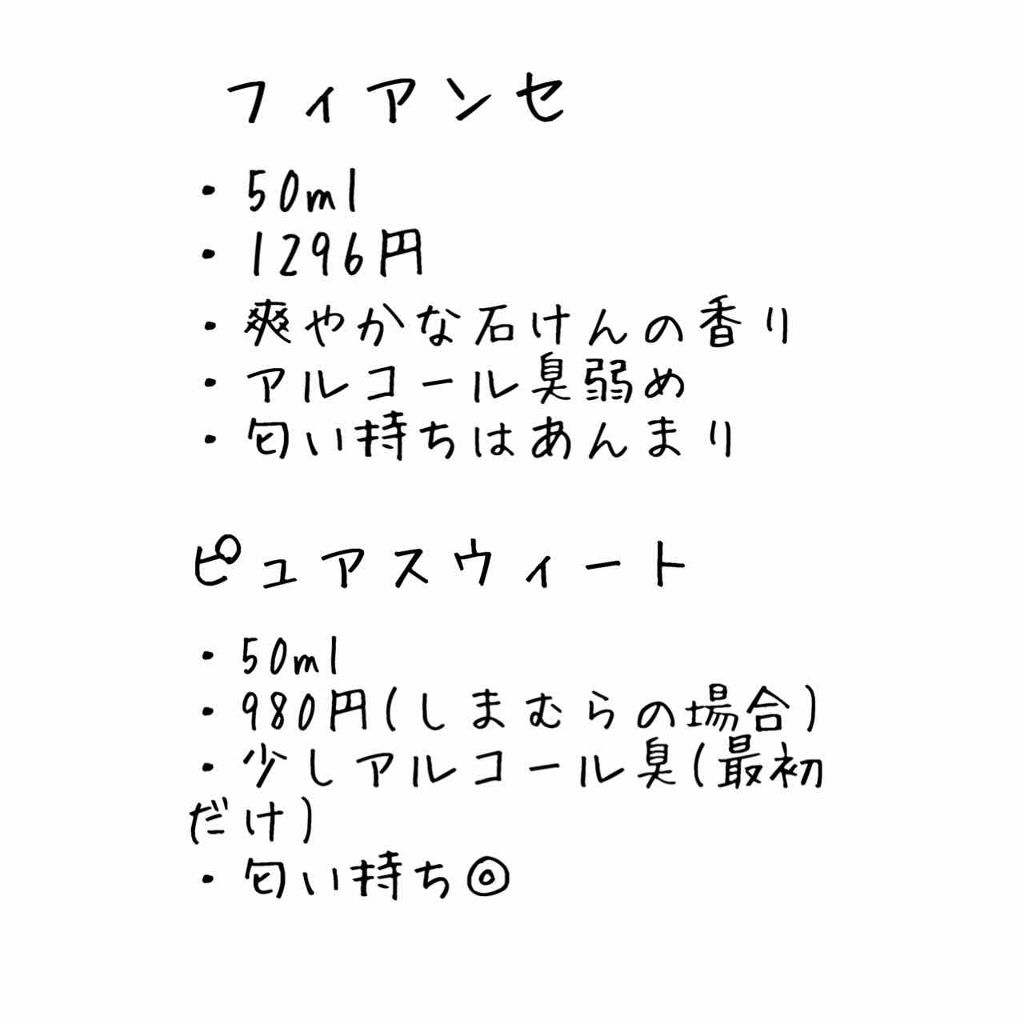 フィアンセ
・50ml
・1296円
・爽やかな石けんの香り
・アルコール臭弱め
・匂い持ちはあんまり
ピュアスウィート
・50ml
・980円(しまむらの場合)
・少しアルコール臭(最初
だけ)
・匂い持ち◎